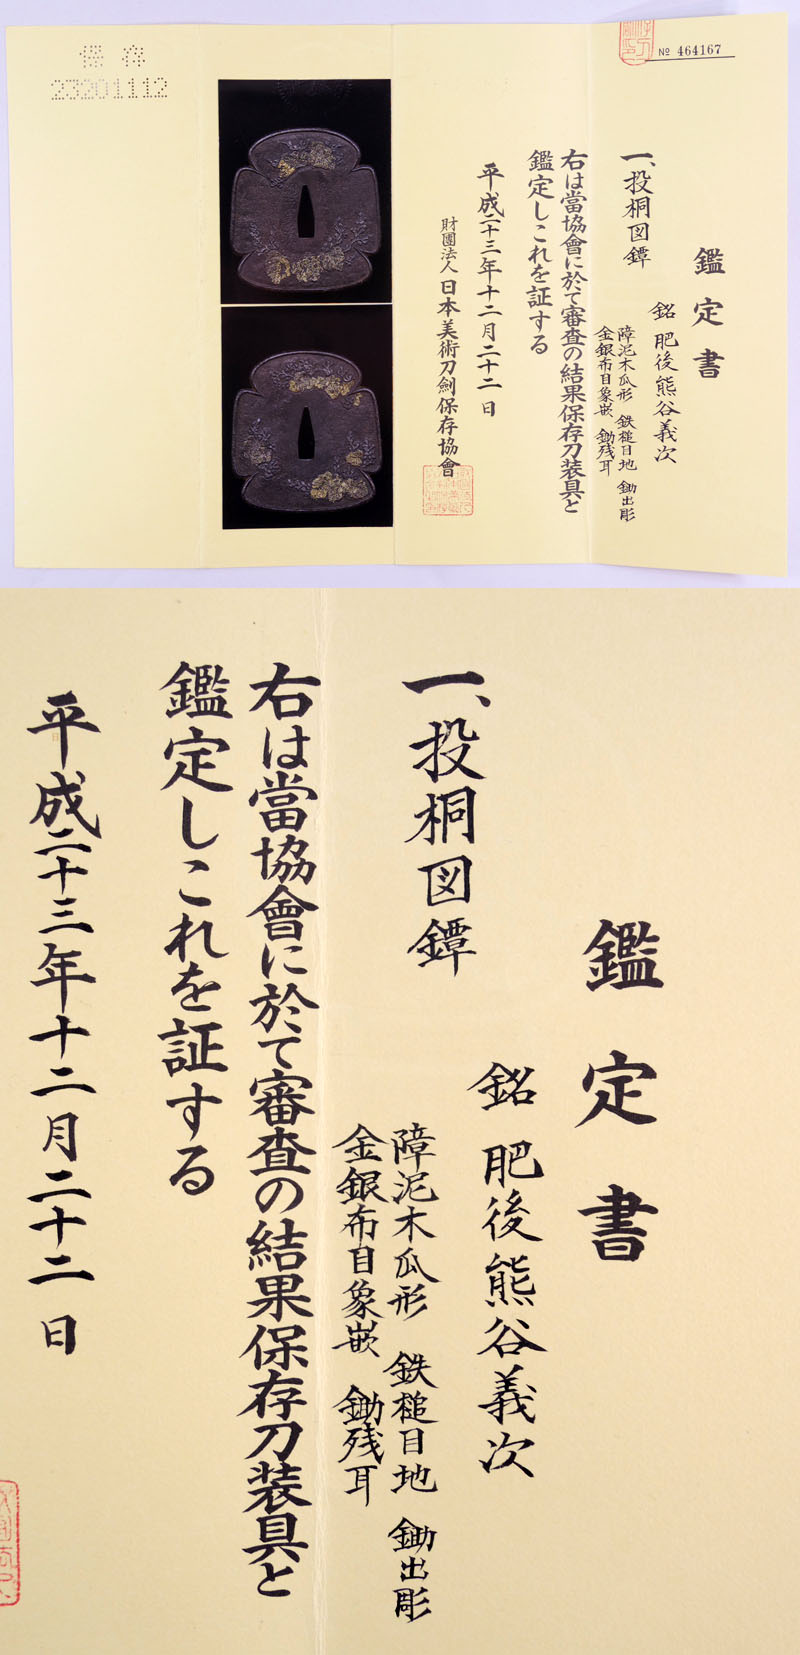 保存
23201112
№ 464167
鑑定書
銘 肥後熊谷義次
一、投桐図鐔
障泥木瓜形 鉄槌目地 鋤出彫
金銀布目象嵌 鋤残耳
右は當協會に於て審査の結果保存刀装具と
鑑定しこれを証する
平成二十三年十二月二十二日
財團法人 日本美術刀劍保存協會
鑑定書
銘 肥後熊谷義次
一、投桐図鐔
障泥木瓜形 鉄槌目地 鋤出彫
金銀布目象嵌 鋤残耳
右は當協會に於て審査の結果保存刀装具と
鑑定しこれを証する
平成二十三年十二月二十二日